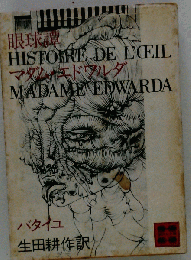 眼球譚
HISTOIRE DE L'ŒIL
マダム・エドワルダ
MADAME EDWARDA
バタイユ
生田耕作訳